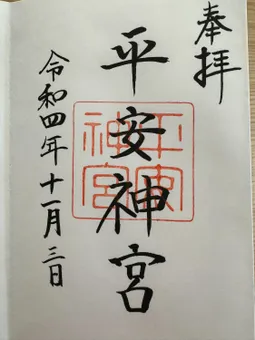 奉拝
平安神宮
平安神宮
令和四年十一月三日